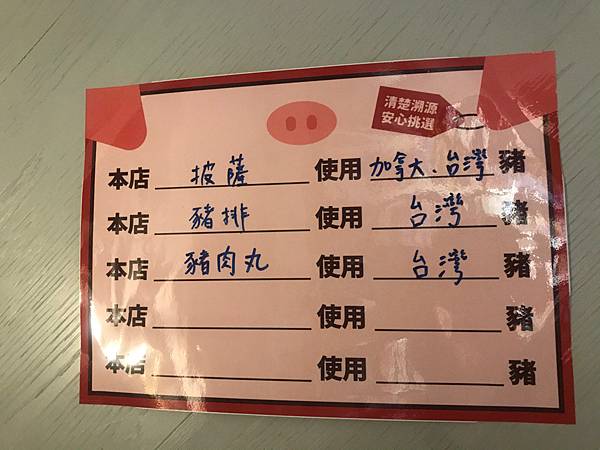 清楚溯源
安心挑選
本店 披薩 使用 加拿大.台灣 豬
本店 豬排 使用 台灣 豬
本店 豬肉丸 使用 台灣 豬
本店 使用 豬
本店 使用 豬